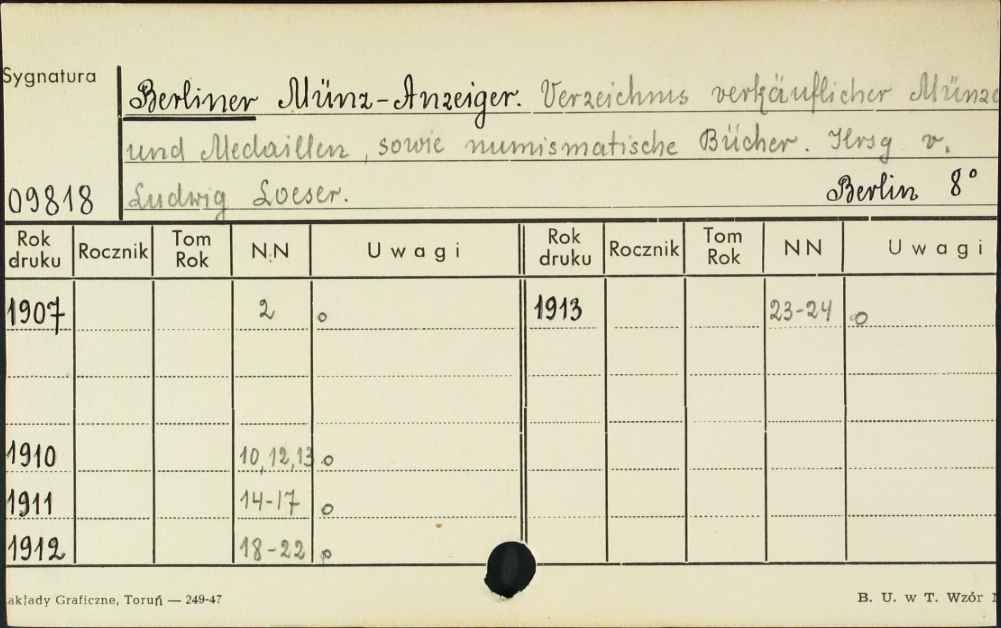 Sygnatura
Berliner Münz-Anzeiger. Verzeichnis verkäuflicher Münze
und Medaillen, sowie numismatische Bücher. Hrsg v.
09818 Ludwig Loeser. Berlin 8°
Rok druku Rocznik Tom Rok NN Uwagi Rok druku Rocznik Tom Rok NN Uwagi
1907 2 o 1913 23-24 o
1910 10,12,13 o
1911 14-17 o
1912 18-22 o
akłady Graficzne, Toruń — 249-47 B. U. w T. Wzór